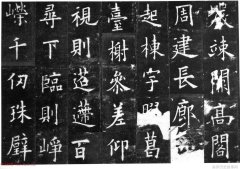 巖竦闕高閣
周建長廊
起棟宇膠葛
臺榭參差仰
視則迢遰百
尋下臨則崢
嶸千仞珠壁